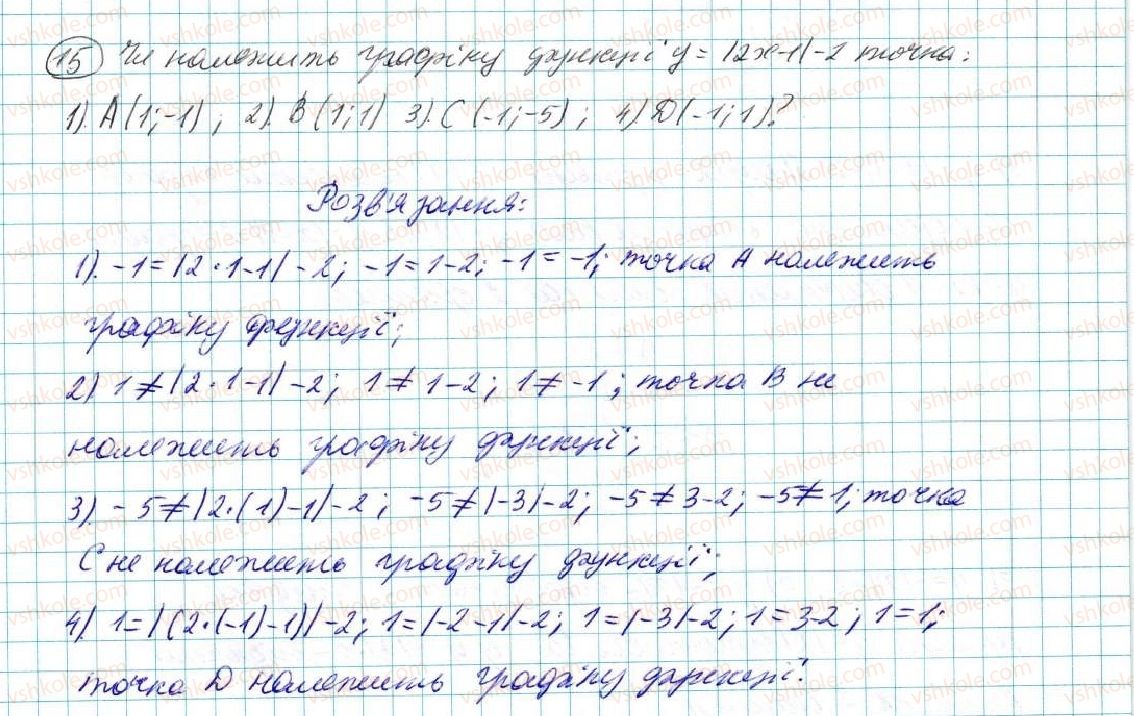 15 Чи належить графіку функції y = |2x-1|-2 точка:
1). A(1;-1); 2). B(1;1) 3). C(-1;-5); 4). D(-1;1)?
Розв'язання:
1). -1=|2·1-1|-2; -1=1-2; -1=-1; точка А належить
графіку функції;
2) 1≠|2·1-1|-2; 1≠1-2; 1≠-1; точка В не
належить графіку функції;
3). -5≠|2·(1)-1|-2; -5≠|-3|-2; -5≠3-2; -5≠1; точка
С не належить графіку функції;
4) 1=|(2·(-1)-1)|-2; 1=|-2-1|-2; 1=|-3|-2; 1=3-2; 1=1;
точка D належить графіку функції.